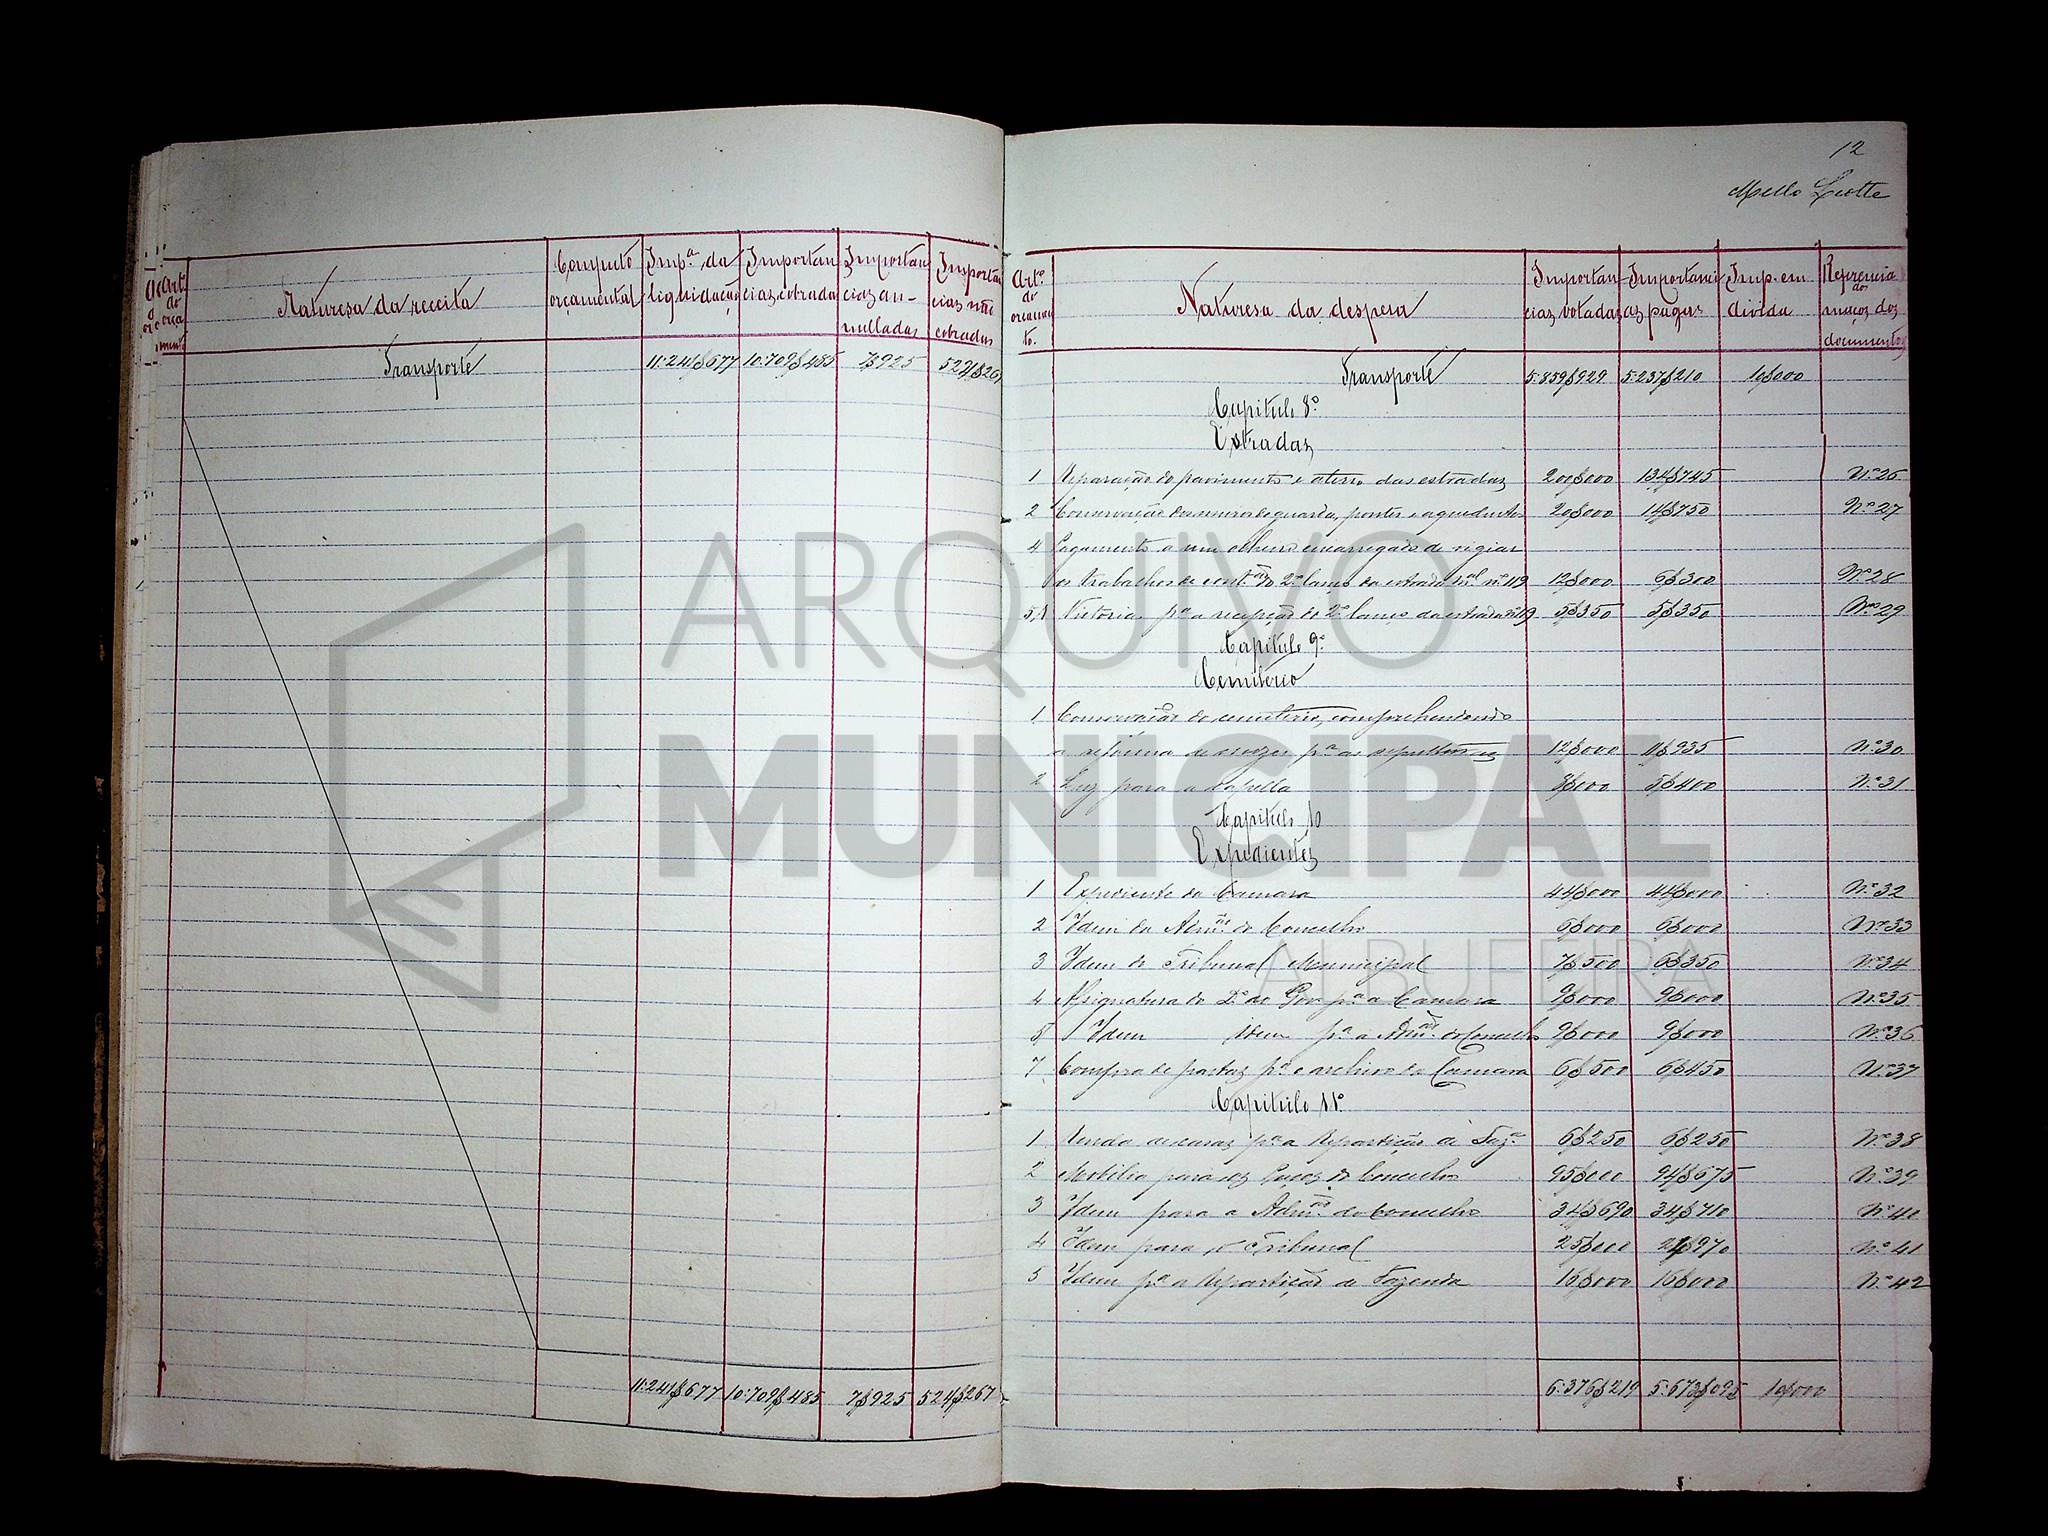 Artº do orçamento
Naturesa da receita
Computo orçamental
Impª da liquidação
Importancias cobradas
Importancias annulladas
Importancias não cobradas
Transporte 11:241$677 10:709$485 7$925 524$267
11:241$677 10:709$485 7$925 524$267
12
Mello Leotte
Artº do orçamento.
Naturesa da despesa
Importancias votadas
Importancias pagas
Imp. em divida
Referencia dos maços dos documentos
Transporte 5:859$929 5:237$210 10$000
Capitulo 8º
Estradas
1 Reparação do pavimento e aterro das estradas 200$000 134$745 Nº 26
2 Conservação dos muros de guarda, pontes e aqueductos 20$000 14$750 Nº 27
4 Pagamento a um olheiro encarregado de vigiar
os trabalhos de const.ão do 2º lanço da estrada m.al nº 119 12$000 6$300 Nº 28
5 Vistorias pª a recepção do 2º lanço da estrada nº 119 5$350 5$350 Nº 29
Capitulo 9º
Cemiterio
1 Conservação do cemeterio, comprehendendo
a reforma de cruzes pª as sepulturas 12$000 11$935 Nº 30
2 Luz para a capella 5$400 Nº 31
Capitulo 10
Expedientes
1 Expediente da Camara 44$000 44$000 Nº 32
2 Idem da Adm.ão do Concelho 6$000 6$000 Nº 33
3 Idem do Tribunal Municipal 7$500 6$350 Nº 34
4 Assignatura do Dº do Gov. pª a Camara 9$000 9$000 Nº 35
5 Idem idem pª a Adm.ão do Concelho 9$000 9$000 Nº 36
7 Compra de pastas pª o archivo da Camara 6$500 6$450 Nº 37
Capitulo 11º
1 Renda de casas pª a Repartição de Fazª 6$250 6$250 Nº 38
2 Mobilia para os Paços do Concelho 95$000 94$675 Nº 39
3 Idem para a Adm.ão do Concelho 34$690 34$710 Nº 40
4 Idem para o Tribunal 25$000 24$970 Nº 41
5 Idem pª a Repartição de Fazenda 16$000 16$000 Nº 42
6:376$219 5:673$095 10$000
ARQUIVO
MUNICIPAL
ALBUFEIRA